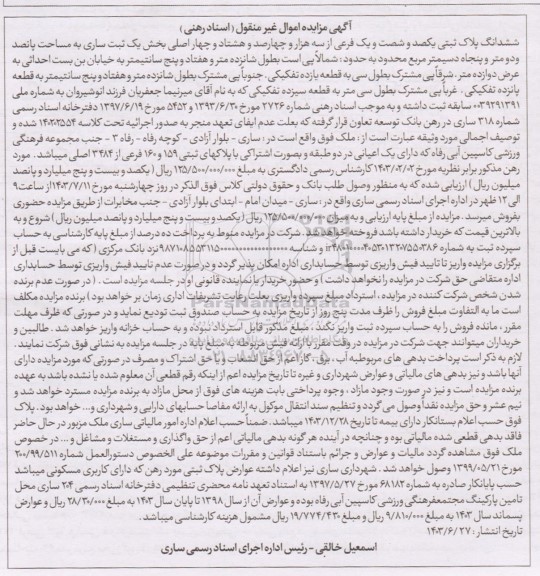 آگهی مزایده اموال غیر منقول (اسناد رهنی)
ششدانگ پلاک ثبتی یکصد و شصت و یک فرعی از سه هزار و چهارصد و هشتاد و چهار اصلی بخش یک ثبت ساری به مساحت پانصد
ودو متر و پنجاه دسیمتر مربع محدود به حدود: شمالاً بی است بطول شانزده متر و هفتاد و پنج سانتیمتر به خیابان بن بست احداثی به
عرض دوازده متر، شرقاً پی مشترک بطول سی به قطعه یازده تفکیکی. جنوباً پی مشترک بطول شانزده متر و هفتاد و پنج سانتیمتر به قطعه
پانزده تفکیکی. غرباً پی مشترک بطول سی متر به قطعه سیزده تفکیکی که به نام آقای میر سینا جعفریان فرزند انوشیروان به شماره ملی
۰۰۳۹۲۹۱۳۹۱ سابقه ثبت داشته و به موجب اسناد رهنی شماره ۲۷۲۶ مورخ ۱۳۹۳/۶/۳۰ و ۵۴۵۲ مورخ ۱۳۹۷/۶/۱۹ دفترخانه اسناد رسمی
شماره ۳۱۸ ساری در رهن بانک توسعه تعاون قرار گرفته که بعلت عدم ایفای تعهد منجر به صدور اجرائیه تحت کلاسه ۱۴۰۲۰۲۵۵۴ شده و
توصیف اجمالی مورد وثیقه عبارت است از: ملک فوق واقع است در: ساری - بلوار آزادی - کوچه رفاه - رفاه ۳ - جنب مجموعه فرهنگی
ورزشی کاسپین آبی رفاه که دارای یک اعیانی در دو طبقه و بصورت اشتراکی با پلاکهای ثبتی ۱۵۹ و ۱۶۰ فرعی از ۳۴۸۴ اصلی میباشد. مورد
رهن مذکور برابر نظریه مورخ ۱۴۰۳/۰۲/۰۲ کارشناس رسمی دادگستری به مبلغ ۱۲۵/۵۰۰/۰۰۰/۰۰۰ ریال (یکصد و بیست و پنج میلیارد و پانصد
میلیون ریال) ارزیابی شده که به منظور وصول طلب بانک و حقوق دولتی کلاس فوق الذکر در روز چهارشنبه مورخ ۱۴۰۳/۷/۱۱ از ساعت ۹
الی ۱۲ ظهر در اداره اجرای اسناد رسمی ساری واقع در: ساری - میدان امام - ابتدای بلوار آزادی - جنب مخابرات از طریق مزایده حضوری
بفروش میرسد. مزایده از مبلغ پایه ارزیابی و به مبلغ ۱۲۵/۵۰۰/۰۰۰/۰۰۰ ریال (یکصد و بیست و پنج میلیارد و پانصد میلیون ریال) شروع و به
بالاترین قیمت که خریدار داشته باشد فروخته خواهد شد. شرکت در مزایده منوط به پرداخت ده درصد از مبلغ پایه کارشناسی به حساب
سپرده ثبت به شماره و شناسه نزد بانک مرکزی (که می بایست قبل از
برگزاری مزایده واریز تا تایید فیش واریزی توسط حسابداری اداره امکان پذیر گردد و در صورت عدم تایید فیش واریزی توسط حسابداری
اداره متقاضی حق شرکت در مزایده را نخواهد داشت) و حضور خریدار یا نماینده قانونی او در جلسه مزایده است. (در صورت عدم برنده
شدن شخص شرکت کننده در مزایده، استرداد مبلغ سپرده واریزی بعلت رعایت تشریفات اداری زمان بر خواهد بود) برنده مزایده مکلف
است ما به التفاوت مبلغ فروش را ظرف مدت پنج روز از تاریخ مزایده به حساب صندوق ثبت تودیع نماید و در صورتی که ظرف مهلت
مقرر، مانده فروش را به حساب سپرده ثبت واریز نکند، مبلغ مذکور قابل استرداد نبوده و به حساب خزانه واریز خواهد شد. طالبین و
خریداران میتوانند جهت شرکت در مزایده در وقت مقرر با ارائه فیش مربوطه ده درصد مبلغ پایه در جلسه مزایده به نشانی فوق شرکت نمایند.
لازم به ذکر است پرداخت بدهی های مربوط به آب، برق، گاز اعم از حق انشعاب و یا حق اشتراک و مصرف در صورتی که مورد مزایده دارای
آنها باشد و نیز بدهی های مالیاتی و عوارض شهرداری و غیره تا تاریخ مزایده اعم از اینکه رقم قطعی آن معلوم شده یا نشده باشد به عهده
برنده مزایده است و نیز در صورت وجود مازاد، وجوه پرداختی بابت هزینه های فوق از محل مازاد به برنده مزایده مسترد خواهد شد و
نیم عشر و حق مزایده نقداً وصول می گردد و تنظیم سند انتقال موکول به ارائه مفاصا حسابهای دارایی و شهرداری و... خواهد بود. پلاک
فوق حسب اعلام بستانکار دارای بیمه تا تاریخ ۱۴۰۳/۱۲/۲۸ میباشد. ضمناً حسب اعلام اداره امور مالیاتی ساری ملک مزبور در حال حاضر
فاقد بدهی قطعی شده مالیاتی بوه و چنانچه در آینده هر گونه بدهی مالیاتی اعم از حق واگذاری و مستغلات و مشاغل و... در خصوص
ملک فوق مشاهده گردد مالیات و عوارض و جرائم باستناد قوانین و مقررات موضوعه علی الخصوص دستورالعمل شماره ۲۰۰/۹۹/۵۱۱
مورخ ۱۳۹۹/۰۵/۲۱ وصول خواهد شد. شهرداری ساری نیز اعلام داشته عوارض پلاک ثبتی مورد رهن که دارای کاربری مسکونی میباشد
حسب پایانکار صادره به شماره ۶۸۱۸۲ مورخ ۱۳۹۷/۵/۲۷ به استناد تعهد نامه محضری تنظیمی دفترخانه اسناد رسمی ۲۰۴ ساری محل
تامین پارکینگ مجتمعفرهنگی ورزشی کاسپین آبی رفاه بوده و عوارض آن از سال ۱۳۹۸ تا پایان سال ۱۴۰۳ به مبلغ ۲۸/۳۰/۰۰۰ ریال و عوارض
پسماند سال ۱۴۰۳ به مبلغ ۹/۸۱۰/۰۰۰ ریال و مبلغ ۱۹/۷۷۴/۴۳۰ ریال مشمول هزینه کارشناسی میباشد.
تاریخ انتشار: ۱۴۰۳/۶/۲۷
اسمعیل خالقی - رئیس اداره اجرای اسناد رسمی ساری